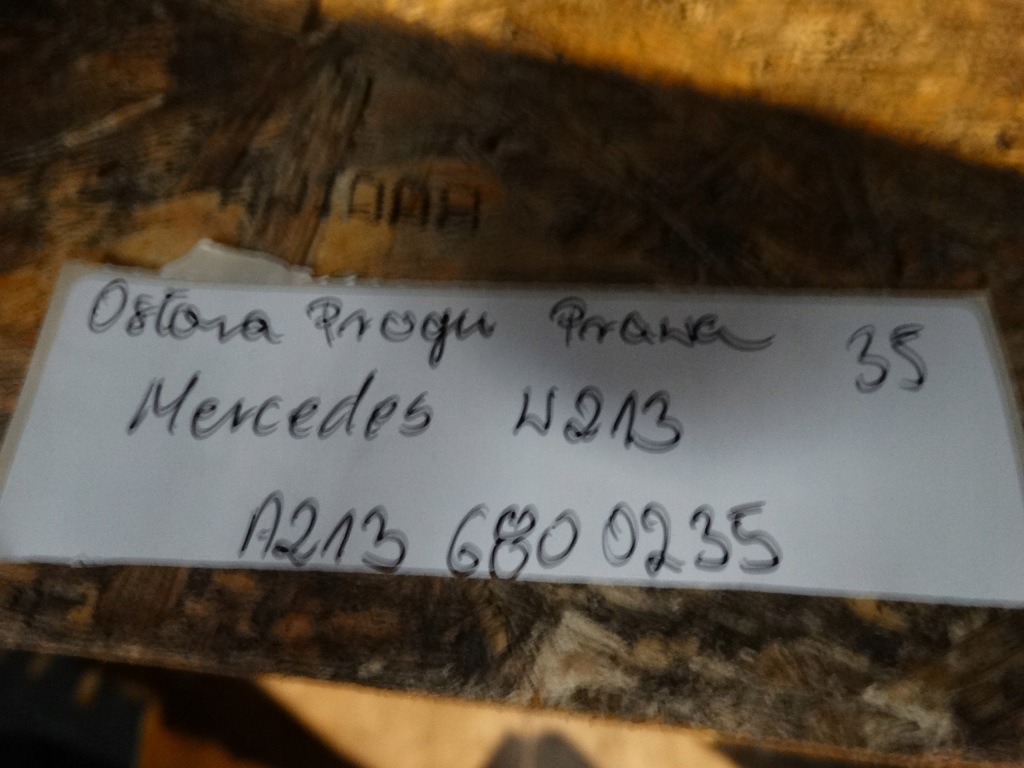 Osłona Progu Prawa 35
Mercedes W213
A213 680 0235